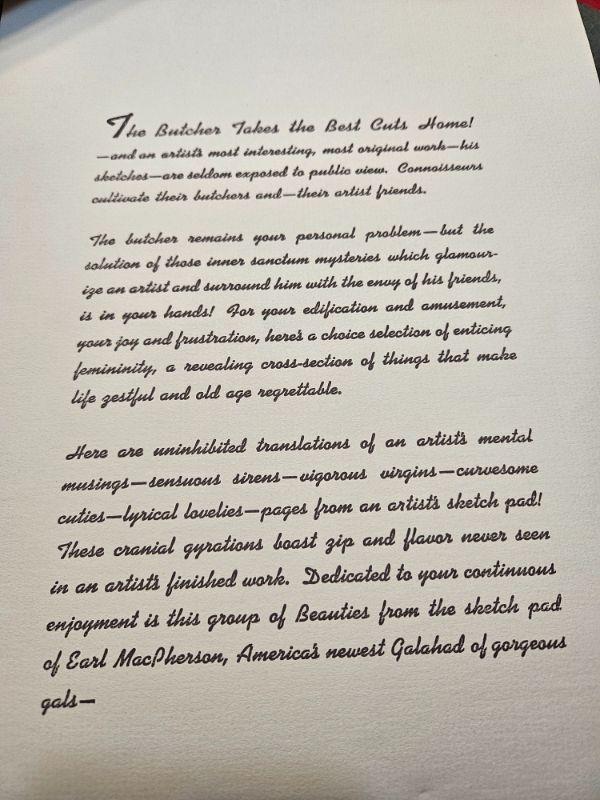 The Butcher Takes the Best Cuts Home!
—and an artist's most interesting, most original work—his
sketches—are seldom exposed to public view. Connoisseurs
cultivate their butchers and—their artist friends.
The butcher remains your personal problem—but the
solution of those inner sanctum mysteries which glamour-
ize an artist and surround him with the envy of his friends,
is in your hands! For your edification and amusement,
your joy and frustration, here's a choice selection of enticing
femininity, a revealing cross-section of things that make
life zestful and old age regrettable.
Here are uninhibited translations of an artist's mental
musings—sensuous sirens—vigorous virgins—curvesome
cuties—lyrical lovelies—pages from an artist's sketch pad!
These cranial gyrations boast zip and flavor never seen
in an artist's finished work. Dedicated to your continuous
enjoyment is this group of Beauties from the sketch pad
of Earl MacPherson, America's newest Galahad of gorgeous
gals—